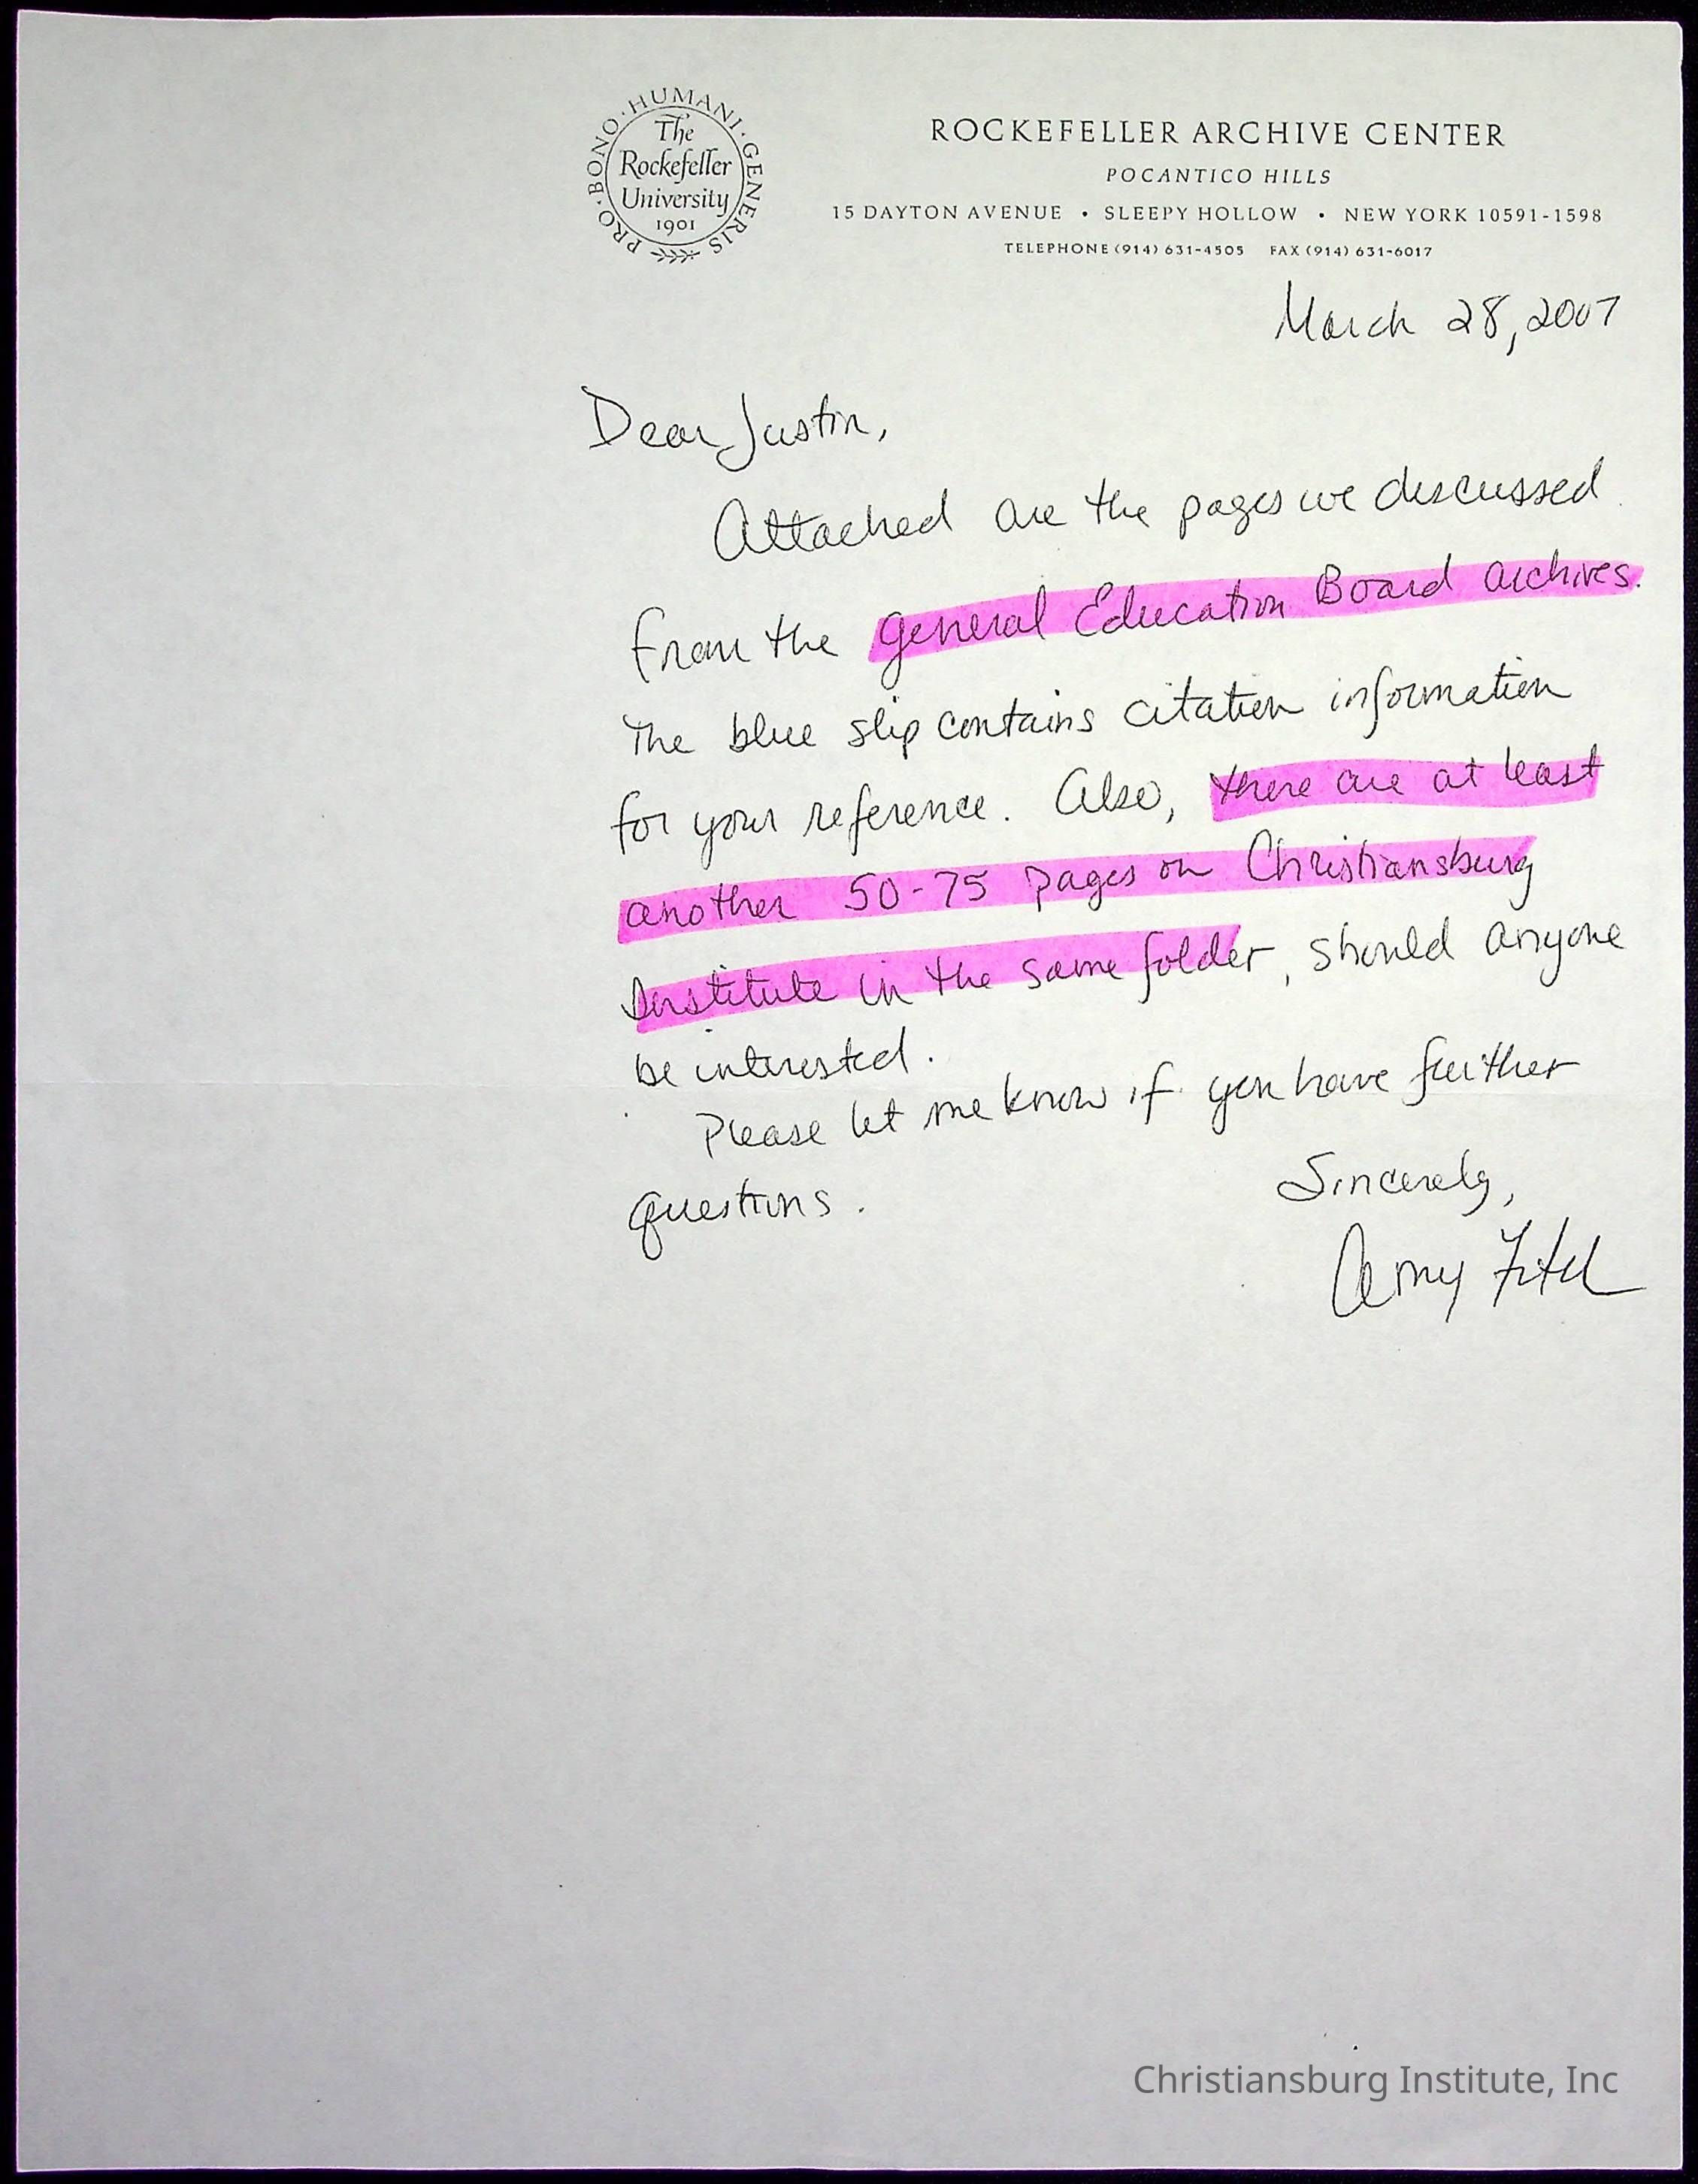 PRO · BONO · HUMANI · GENERIS
The
Rockefeller
University
1901
ROCKEFELLER ARCHIVE CENTER
POCANTICO HILLS
15 DAYTON AVENUE • SLEEPY HOLLOW • NEW YORK 10591-1598
TELEPHONE (914) 631-4505 FAX (914) 631-6017
March 28, 2007
Dear Justin,
Attached are the pages we discussed
from the General Education Board archives.
The blue slip contains citation information
for your reference. Also, there are at least
another 50-75 pages on Christiansburg
Institute in the same folder, should anyone
be interested.
Please let me know if you have further
questions.
Sincerely,
Amy Fitch
Christiansburg Institute, Inc